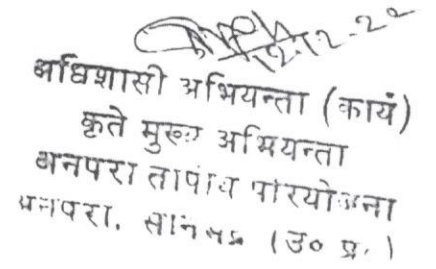 12-12-20
अधिशासी अभियन्ता (कार्य)
कृते मुख्य अभियन्ता
अनपरा तापीय परियोजना
अनपरा, सोनभद्र (उ० प्र०)